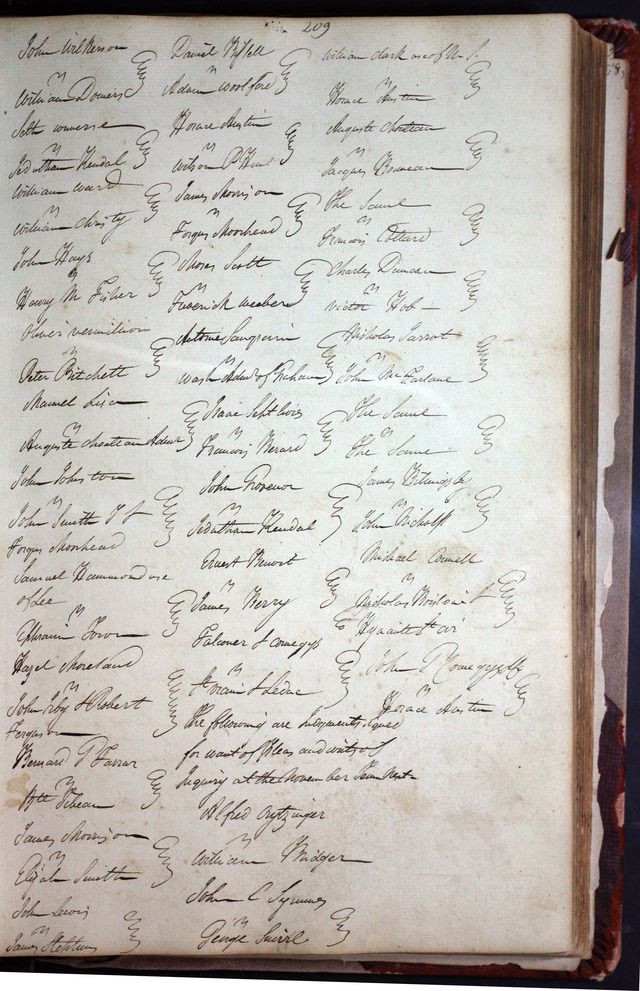 209
John Wilkerson
vs
William Downs
Seth Converse
vs
Jeduthan Kendal
William Ward
vs
William Christy
John Hays
vs
Henry M Fisher
Oliver vermillion
vs
Peter Pritchett
Manuel Lisa
vs
Auguste Chouteau Admr
John Johnston
vs
John Smith T &
Fergus Moorhead
Samuel Hammond use
of Lee
vs
Ephraim Town
Hazel Moreland
vs
John Troy & Robert
Ferguson
Bernard G Farrar
vs
Bte Tibeau
James Morrison
vs
Elijah Smith
John Lewis
vs
James Stephens
Daniel Bissell
vs
Adam Woolford
Horace Austin
vs
Wilson P Hunt
James Morrison
vs
Fergus Moorhead
Moses Scott
vs
Frederick Weeber
Antoine Saugrain
vs
Wash Admr of Graham
Isaac Septlivis
vs
Francois Menard
John Grovenor
vs
Jeduthan Kendal
Ernest Benoit
vs
James Berry
Falconer & Comegys
vs
St Vrain & Leduc
The following are Judgments signed
for want of Pleas and writs of
Inquiry at the November Term next
Alfred Crytzinger
vs
William Bridger
John C Symmes
vs
George Smirl
William Clark use of U. S.
vs
Horace Austin
Auguste Chouteau
vs
Jacques Bonneau
The Same
vs
Francois Collard
Charles Duncan
vs
Victor Hob
Nicholas Jarrot
vs
John McFarlane
The Same
vs
The Same
James Bitningsly
vs
John Nicholss
Michael Connell
vs
Nicholas Boilvin &
Hyacinte St Cir
John G Comegys &Co
vs
Horace Austin